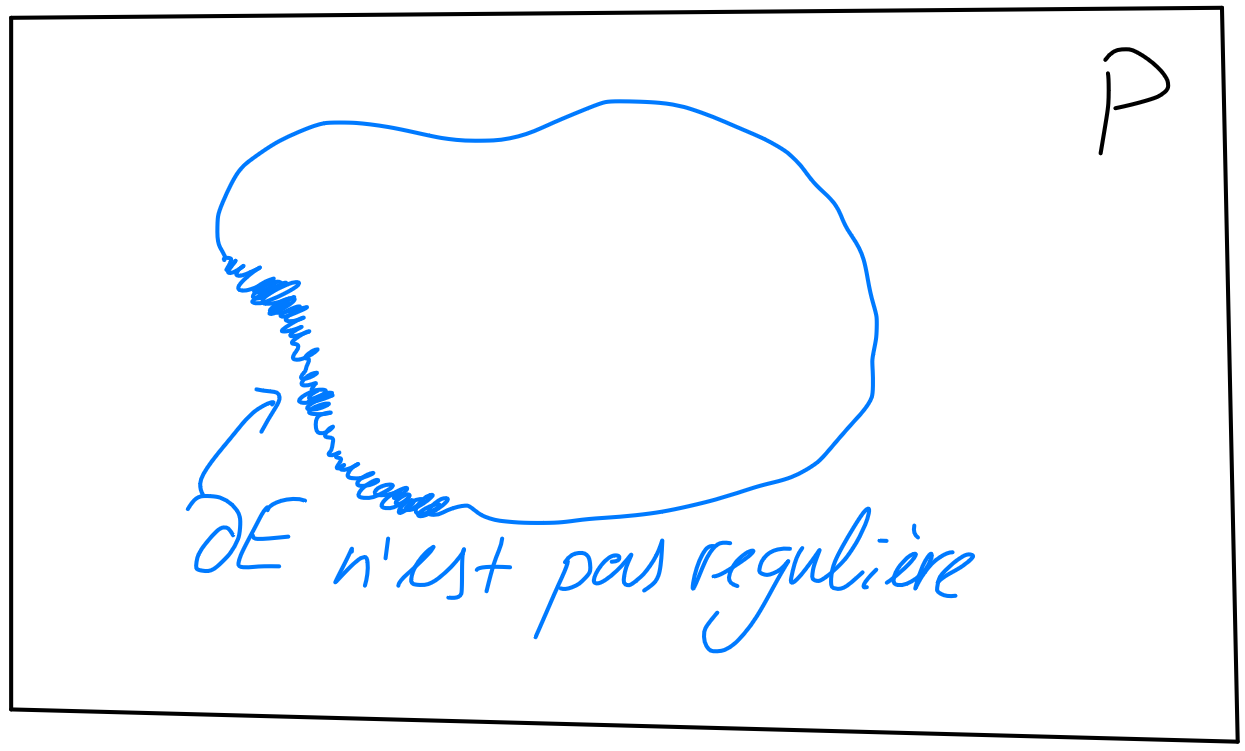 P
∂E n'est pas regulière